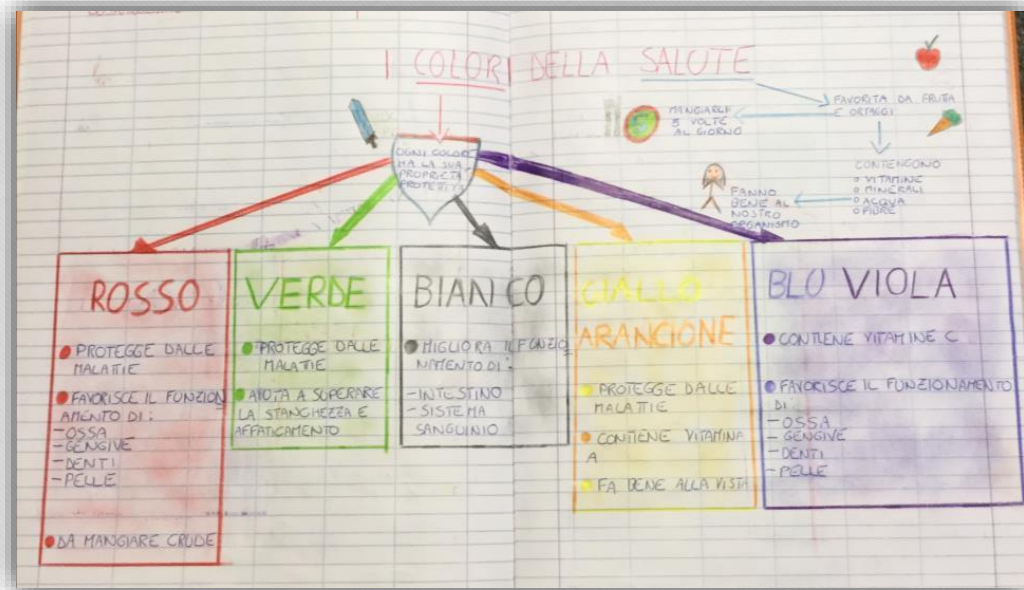 I COLORI DELLA SALUTE
FAVORITA DA FRUTA
E ORTAGGI
MANGIARLE
5 VOLTE
AL GIORNO
CONTENGONO
VITAMINE
MINERALI
ACQUA
FIBRE
FANNO
BENE AL
NOSTRO
ORGANISMO
OGNI COLORE
HA LA SUA
PROPRIETÀ
ROSSO
PROTEGGE DALLE
MALATTIE
FAVORISCE IL FUNZION
AMENTO DI:
-OSSA
-GENGIVE
-DENTI
-PELLE
DA MANGIARE CRUDE
VERDE
PROTEGGE DALLE
MALATTIE
AIUTA A SUPERARE
LA STANCHEZZA E
AFFATICAMENTO
BIANCO
MIGLIORA IL FUNZIO
NAMENTO DI:
-INTESTINO
-SISTEMA
SANGUINIO
GIALLO
ARANCIONE
PROTEGGE DALLE
MALATTIE
CONTIENE VITAMINA
A
FA BENE ALLA VISTA
BLU VIOLA
CONTIENE VITAMINE C
FAVORISCE IL FUNZIONAMENTO
DI:
-OSSA
-GENGIVE
-DENTI
-PELLE